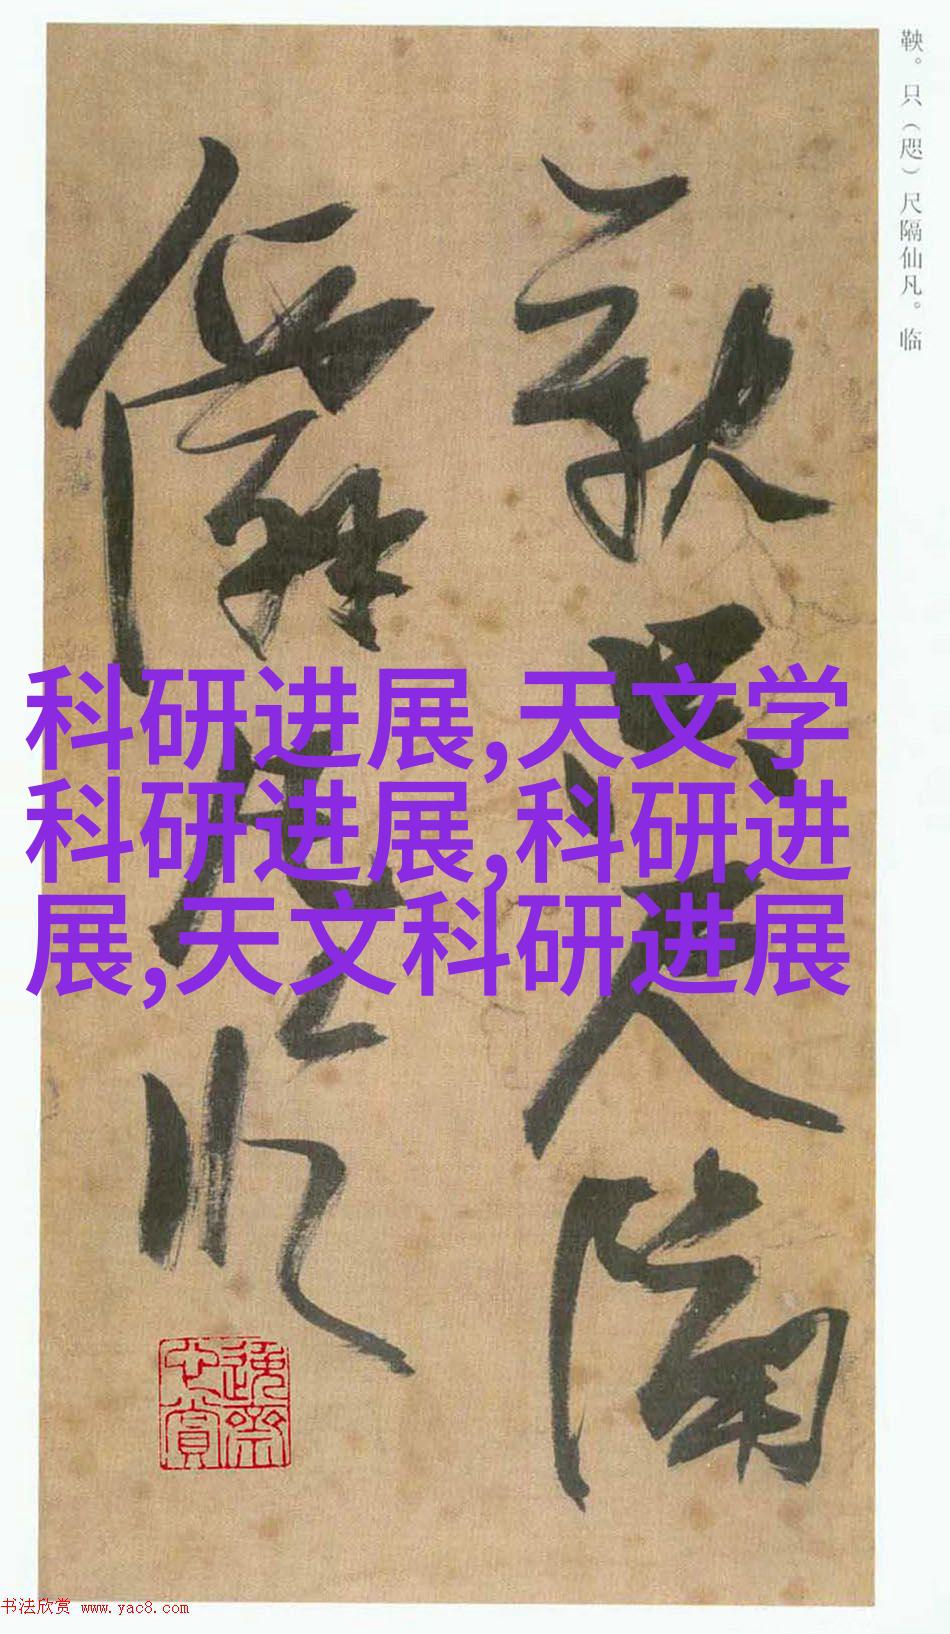 鞅。只（咫）尺隔仙凡。临
鞅只尺隔
仙凡临
科研进展,天文学
科研进展,科研进
展,天文科研进展
心赏
书法欣赏 www.yac8.com